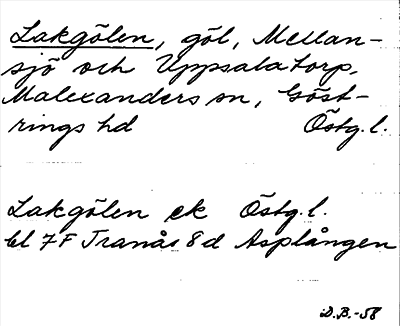 Lakgölen, göl, Mellan-
sjö och Uppsalatorp,
Malexanders sn, Göst-
rings hd Östg. l.
Lakgölen ek Östg. l.
bl 7F Tranås 8d Asplången
D.B.-58